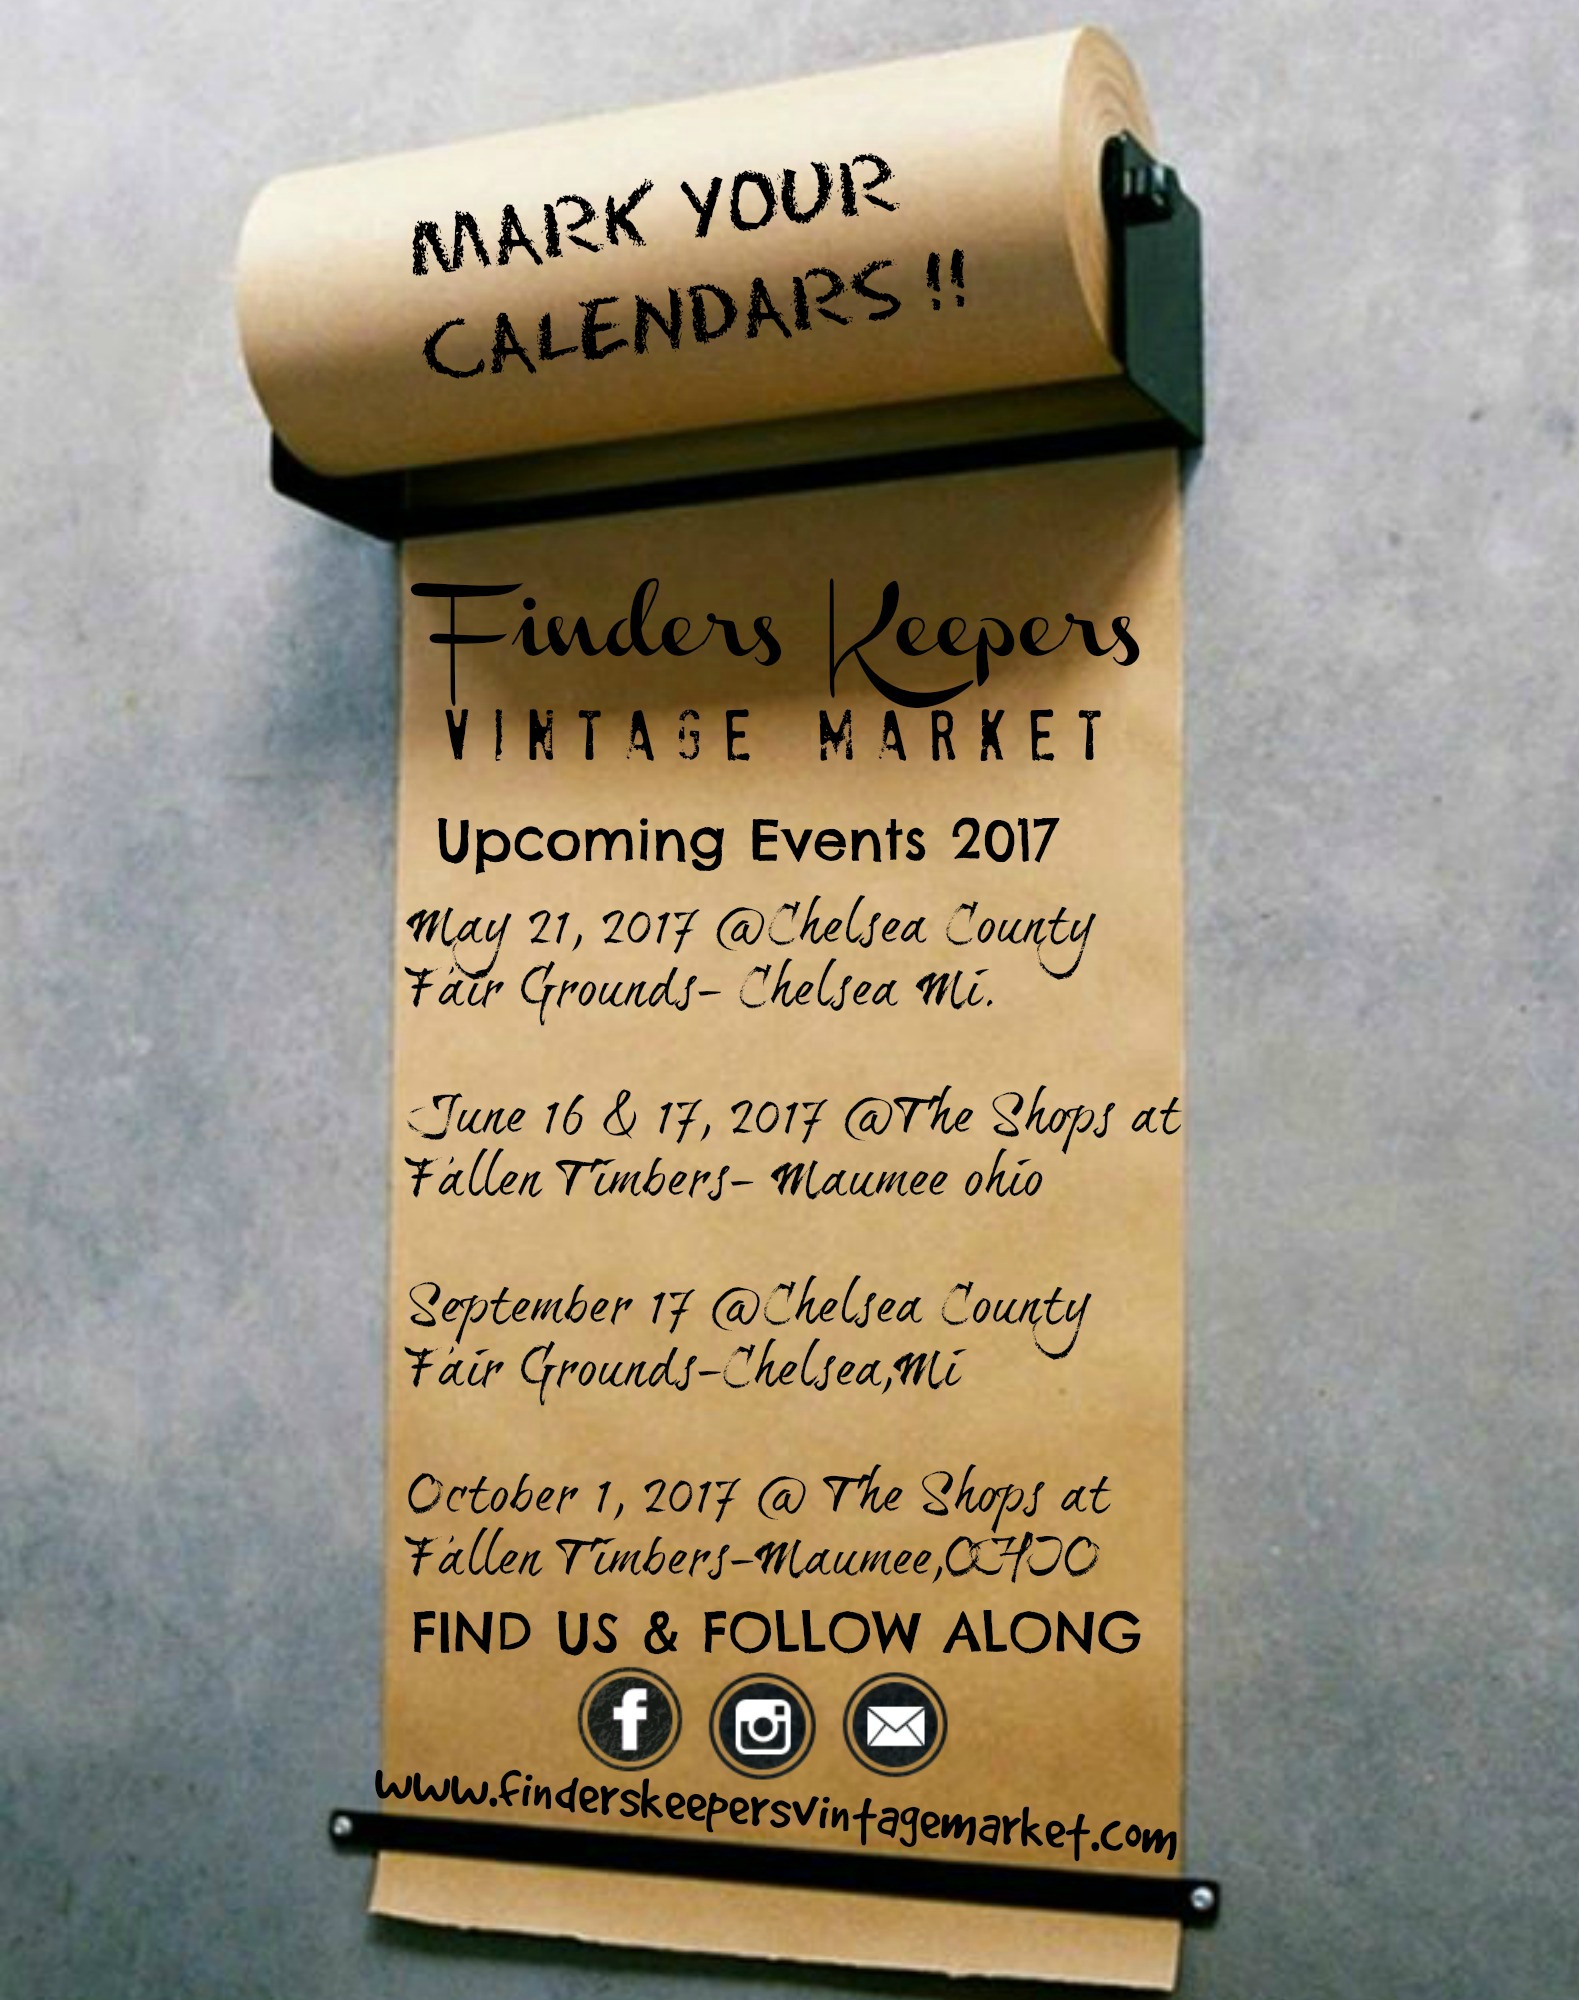 MARK YOUR
CALENDARS !!
Finders Keepers
VINTAGE MARKET
Upcoming Events 2017
May 21, 2017 @Chelsea County
Fair Grounds- Chelsea Mi.
June 16 & 17, 2017 @The Shops at
Fallen Timbers- Maumee ohio
September 17 @Chelsea County
Fair Grounds-Chelsea,Mi
October 1, 2017 @ The Shops at
Fallen Timbers-Maumee,OHIO
FIND US & FOLLOW ALONG
www.finderskeepersvintagemarket.com